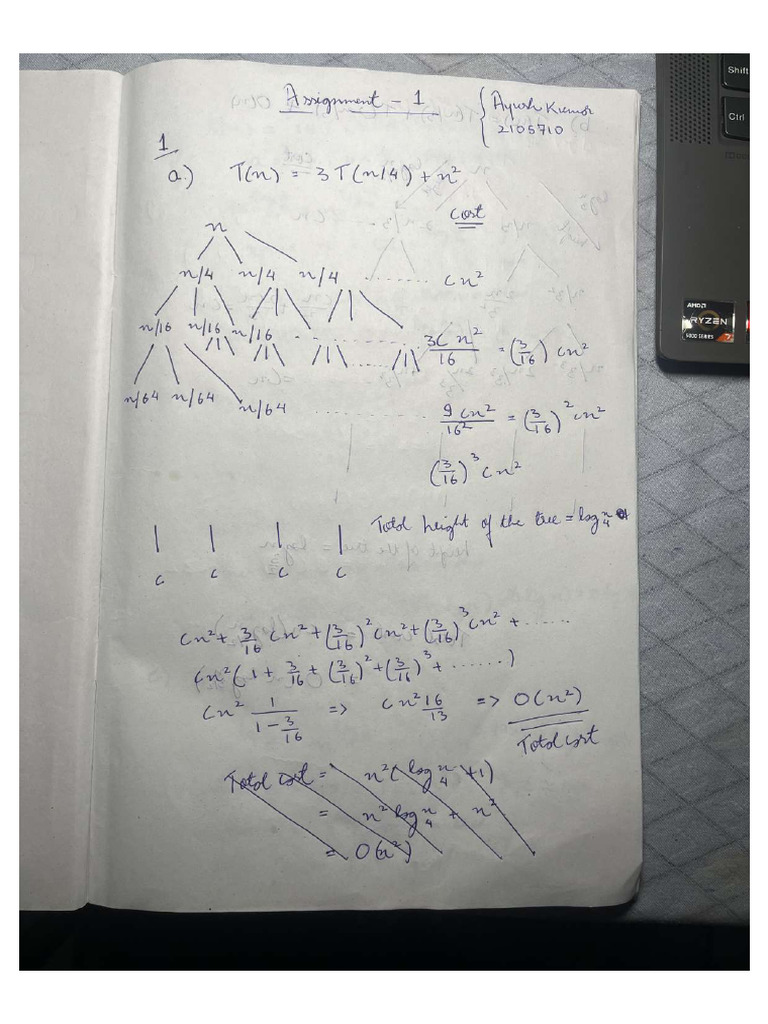 Assignment - 1
Ayush Kumar
2105710
1
a.) T(n) = 3T(n/4) + n²
cost
n
n/4 n/4 n/4 ........ cn²
n/16 n/16 n/16 ........ 3cn²/16 = (3/16) cn²
n/64 n/64 n/64 ........ 9cn²/16² = (3/16)² cn²
(3/16)³ cn²
Total height of the tree = log₄ n
c c c c
cn² + 3/16 cn² + (3/16)² cn² + (3/16)³ cn² + ......
cn² (1 + 3/16 + (3/16)² + (3/16)³ + ......)
cn² 1/(1 - 3/16) => cn² 16/13 => O(n²)
Total cost
Total cost = n² (log₄ n + 1)
= n² log₄ n + n²
= O(n²)
Shift
Ctrl
AMD
RYZEN
5000 SERIES 7